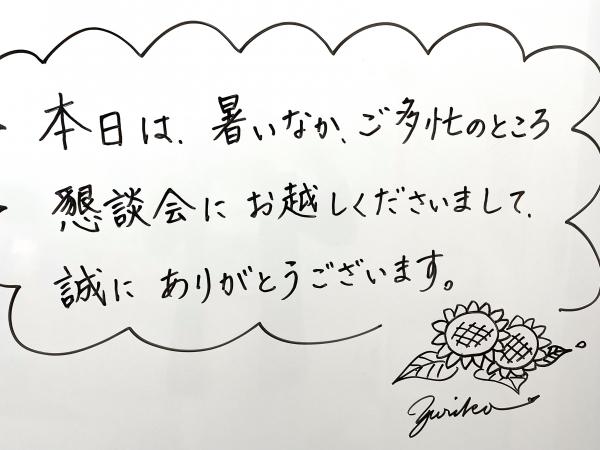 本日は、暑いなか、ご多忙のところ
懇談会に お越しくださいまして、
誠に ありがとうございます。
Yuriko